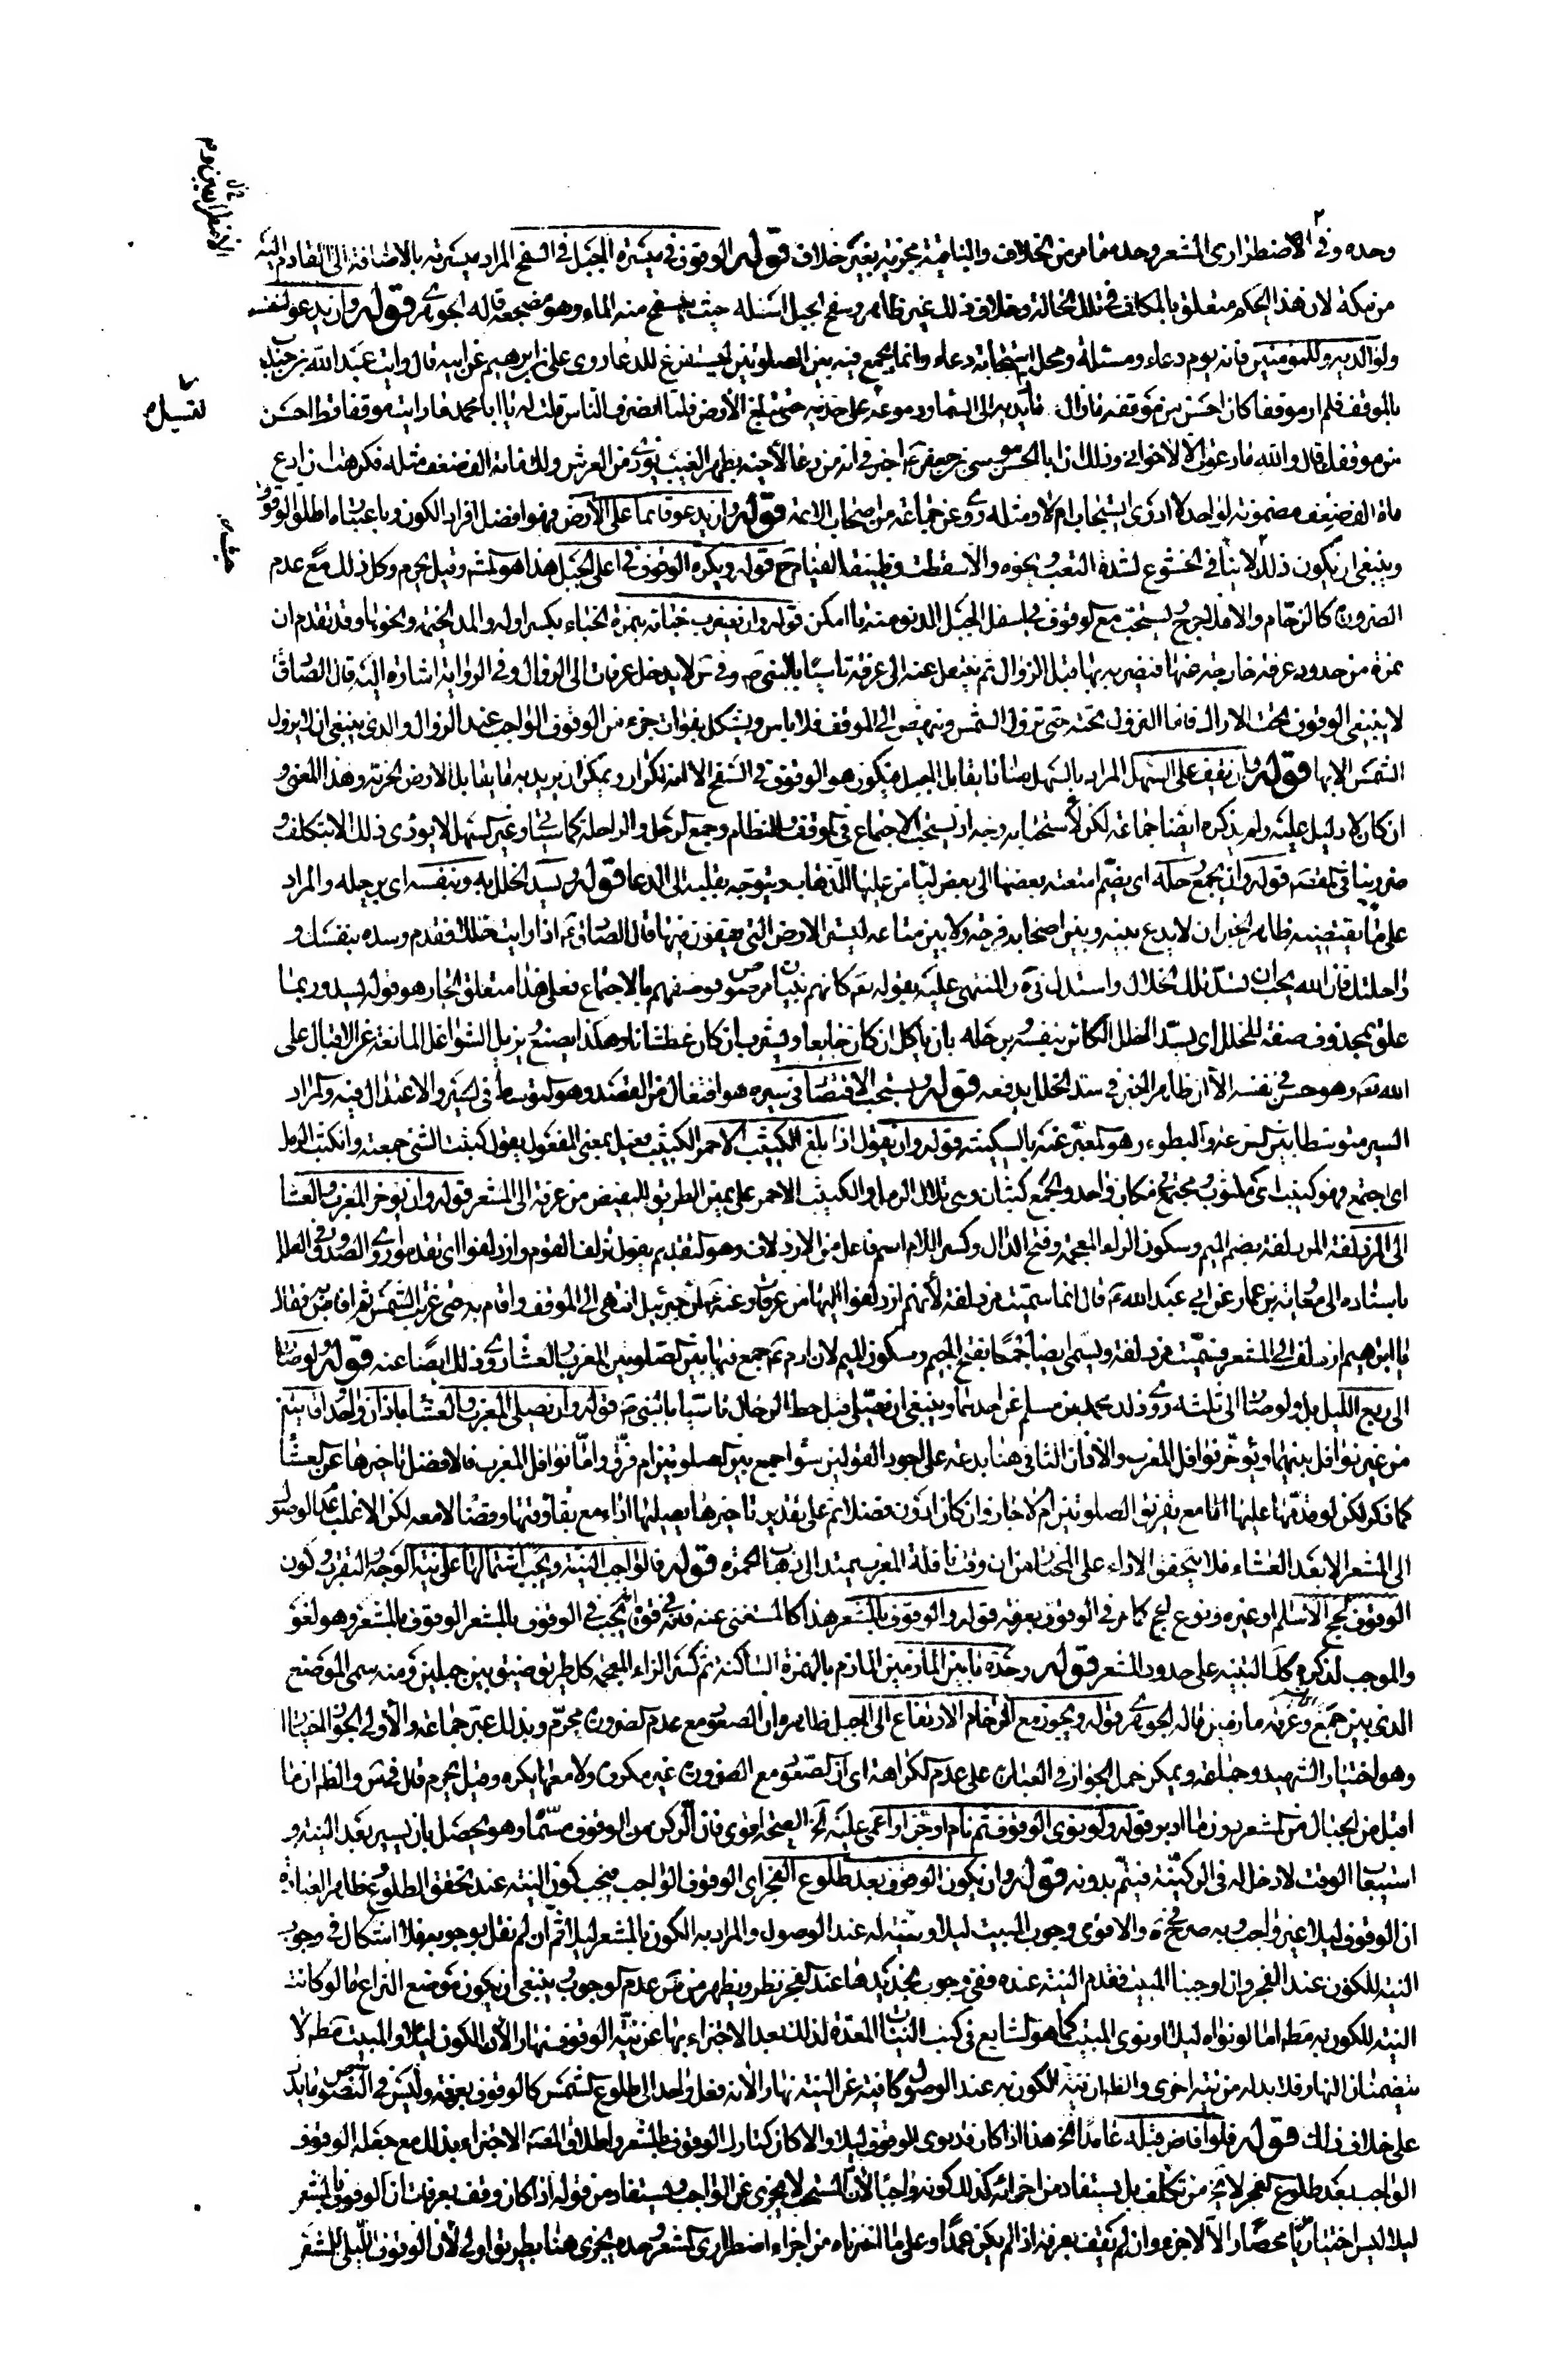 وحده وفي الاضطراري المشعر وحده مما مر من الخلاف والباقية مجزية بغير خلاف قوله الوقوف في ميسرة الجبل في السفح المراد ميسرته بالاضافة الى القادم اليه
من مكة لان هذا الحكم متعلق بالمكلف في تلك الحالة وخلاف ذلك غير ظاهر وسفح الجبل اسفله حيث يسفح منه الماء وهو مضجعه قاله الجوهري قوله وان يدعو لنفسه
ولوالديه وللمؤمنين فانه يوم دعاء ومسئلة ومحل استجابة دعاء وانما يجمع فيه بين الصلوتين ليستفرغ للدعا روى علي بن ابرهيم عن ابيه قال رايت عبد الله بن جندب
بالموقف فلم ار موقفا كان احسن من موقفه ما زال مادا يديه الى السما ودموعه على خديه حتى تبلغ الارض فلما انصرف الناس قلت له يا ابا محمد ما رايت موقفا قط احسن
من موقفك قال والله ما دعوت الا لاخواني وذلك ان ابا الحسن موسى بن جعفر ع اخبرني انه من دعا لاخيه بظهر الغيب نودي من العرش ولك مائة الف ضعف مثله فكرهت ان ادع
مائة الف ضعف مضمونة لواحد لا ادري يستجاب ام لا ومثله روي عن جماعة من اصحاب الائمة قوله وان يدعو قائما على الارض فهو افضل افراد الكون وباعتباره اطلق الوقوف
وينبغي ان يكون ذلك لا ينافي الخشوع لشدة التعب ونحوه والا سقطت وظيفة القيام ح قوله ويكره الوقوف في اعلى الجبل هذا هو المشهور وقيل يحرم وكل ذلك مع عدم
الضرورة كالزحام والا فلا حرج ويستحب مع الوقوف في اسفل الجبل الدنو منه ما امكن قوله وان يضرب خباءه بنمرة الخباء بكسر اوله والمد الخيمة ونحوها وقد تقدم ان
نمرة من حدود عرفة خارجة عنها فيضربه بها قبل الزوال ثم ينتقل عنه الى عرفة تاسيا بالنبي ص وفي س لا يدخل عرفات الى الزوال وفي الرواية اشارة اليه قال الصادق
لا ينبغي الوقوف تحت الاراك فاما النزول تحته حتى تزول الشمس وينهض الى الموقف فلا باس ويشكل بفوات جزء من الوقوف الواجب عند الزوال والذي ينبغي ان لا يزول
الشمس الا بها قوله وان يقف على السهل المراد بالسهل هنا ما يقابل الجبل فيكون هو الوقوف في السفح الا انه تكرار ويمكن ان يريد به ما يقابل الارض الحزنة وهذا المعنى و
ان كان لا دليل عليه ولم يذكره ايضا جماعة لكن لاستحبابه وجه اذ يستحب الاجتماع في الموقف والنظام وجمع الرحل والراحلة كما سياتي وغير السهل لا يؤدي ذلك الا بتكلف و
قوله وان يجمع رحله اي يضم امتعته بعضها الى بعض ليامن عليها الذهاب ويتوجه بقلبه الى الدعا قوله ويسد الخلل به وبنفسه اي برحله والمراد
على ما يقتضيه ظاهر الخبر ان لا يدع بينه وبين اصحابه فرجة ولا بين متاعه ليستر الارض التي يقفون فيها قال الصادق ع اذا رايت خللا فتقدم وسده بنفسك و
راحلتك فان الله يحب ان تسد تلك الخلال واستدل في المنتهى عليه بقوله تع كانهم بنيان مرصوص فوصفهم بالاجتماع فعلى هذا متعلق الجار هو قوله يسد وربما
علق بمحذوف صفة للخلل اي يسد الخلل الكائن بنفسه برحله بان ياكل ان كان جايعا ويشرب ان كان عطشانا وهكذا يصنع يزيل الشواغل المانعة عن الاقبال على
الله تع وهو حسن في نفسه الا ان ظاهر الخبر في سد الخلل يدفعه قوله ويستحب الاقتصاد في سيره هو افتعال من القصد وهو التوسط في السير والاعتدال فيه والمراد
السير متوسطا بين السرعة والبطوء وهو المعبر عنه بالسكينة قوله وان يقول اذا بلغ الكثيب الاحمر الكثيب فعيل بمعنى المفعول يقول كثبت الشئ جمعته وانكثب الرمل
اي اجتمع فهو كثيب اي مكثوب مجتمع في مكان واحد والجمع كثبان وهي تلال الرمل والكثيب الاحمر على يمين الطريق للمفيض من عرفة الى المشعر قوله وان يؤخر المغرب والعشا
الى المزدلفة المزدلفة بضم الميم وسكون الزاء المعجمة وفتح الدال وكسر اللام اسم فاعل من الازدلاف وهو التقدم يقول تزلف القوم وازدلفوا اي تقدموا روى الصدوق في العلل
باسناده الى معاوية بن عمار عن ابي عبد الله ع قال انما سميت مزدلفة لانهم ازدلفوا اليها من عرفات وعنه ع ان جبرئيل انتهى الى الموقف واقام به حتى غربت الشمس ثم افاض به فقال
يا ابرهيم ازدلف الى المشعر فسميت مزدلفة ويسمى ايضا جمعا بفتح الجيم وسكون الميم لان ادم ع جمع فيها بين الصلوتين المغرب والعشا روي ذلك ايضا عنه قوله ولو صار
الى ربع الليل بل ولو صار الى ثلثه روى ذلك محمد بن مسلم عن احدهما وينبغي ان يصلي قبل حط الرحال تاسيا بالنبي ص قوله وان يصلي المغرب والعشا باذان واحد واقامتين
من غير نوافل بينهما ويؤخر نوافل المغرب والاذان الثاني هنا بدعة على اجود القولين سواء جمع بين الصلوتين ام فرق واما نوافل المغرب فالافضل تاخيرها عن العشا
كما ذكر لكن لو قدمها عليها اما مع تفريق الصلوتين ام لا جاز وان كان ادون فضلا ثم على تقدير تاخيرها يصليها اداء مع بقاء وقتها وقضا لا معه لكن الاغلب عدم الوصول
الى المشعر الا بعد العشاء فلا يتحقق الاداء على المختار من ان وقت نافلة المغرب يمتد الى ذهاب الحمرة قوله فالواجب النية ويجب اشتمالها على نية الوجه والتقرب وكون
الوقوف لحج الاسلام او غيره ونوع الحج كما مر في الوقوف بعرفة قوله والوقوف بالمشعر هذا كالمستغنى عنه فانه في قوة يجب في الوقوف بالمشعر الوقوف بالمشعر وهو لغو
والموجب لذكره كك التنبيه على حدود المشعر قوله وحده ما بين المازمين المازم بالهمزة الساكنة ثم كسر الزاء المعجمة كل طريق ضيق بين جبلين ومنه سمى الموضع
الذي بين جمع وعرفة مازمين قاله الجوهري قوله ويجوز مع الزحام الارتفاع الى الجبل ظاهره ان الصعود مع عدم الضرورة محرم وبذلك عبر جماعة والاولى الجواز اختيارا
وهو اختيار الشهيد وجماعة ويمكن حمل الجواز في العبارة على عدم الكراهة اي ان الصعود مع الضرورة غير مكروه ولا معها يكره وقيل يحرم قال في س والظاهر ان ما
اقبل من الجبال من المشعر دون ما ادبر قوله ولو نوى الوقوف ثم نام او جن او اغمي عليه الخ الصحة اقوى فان الركن من الوقوف مسماه وهو يحصل بان يسير بعد النية و
استيعاب الوقت لا دخل له في الركنية فيتم بدونه قوله وان يكون الوقوف بعد طلوع الفجر اي الوقوف الواجب فيجب كون النية عند تحقق الطلوع وظاهر العبارة
ان الوقوف ليلا غير واجب وبه صرح في والاقوى وجوب المبيت ليلا ونيته له عند الوصول والمراد به الكون بالمشعر ليلا ثم ان لم نقل بوجوبه فلا اشكال في وجوب
النية للكون عند الفجر وان اوجبنا المبيت فقدم النية عنده ففي وجوب تجديدها عند الفجر نظر ويظهر من س عدم الوجوب ينبغي ان يكون موضع النزاع ما لو كانت
النية للكون به مطلقا اما لو نواه ليلا او نوى المبيت كما هو الشايع في كتب النيات المعدة لذلك بعد الاجتزاء بها عن نية الوقوف نهارا لان الكون ليلا والمبيت مطلقا لا
يتضمنان النهار فلا بد له من نية اخرى والظاهر ان نية الكون به عند الوصول كافية عن النية نهارا لانه فعل واحد الى طلوع الشمس كالوقوف بعرفة وليس في النصوص ما يدل
على خلاف ذلك قوله فلو افاض قبله عامدا الخ هذا اذا كان قد نوى الوقوف ليلا والا كان كتارك الوقوف بالمشعر واطلاق المص الاجتزاء بذلك مع جعله الوقوف
الواجب بعد طلوع الفجر لا يخ من تكلف بل يستفاد من اجزائه كذلك كونه واجبا لان المستحب لا يجزي عن الواجب ويستفاد من قوله اذا كان وقف بعرفات ان الوقوف بالمشعر
ليلا ليس اختياريا محضا والا لاجزء وان لم يقف بعرفة اذا لم يكن عمدا وعلى ما اخترناه من اجزاء اضطراري المشعر وحده يجزي هنا بطريق اولى لان الوقوف الليلي للمشعر